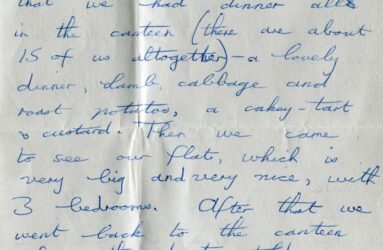 that we had dinner all
in the canteen (there are about
15 of us altogether) – a lovely
dinner, lamb, cabbage and
roast potatoes, a cakey-tart
& custard. Then we came
to see our flat, which is
very big and very nice, with
3 bedrooms. After that we
went back to the canteen